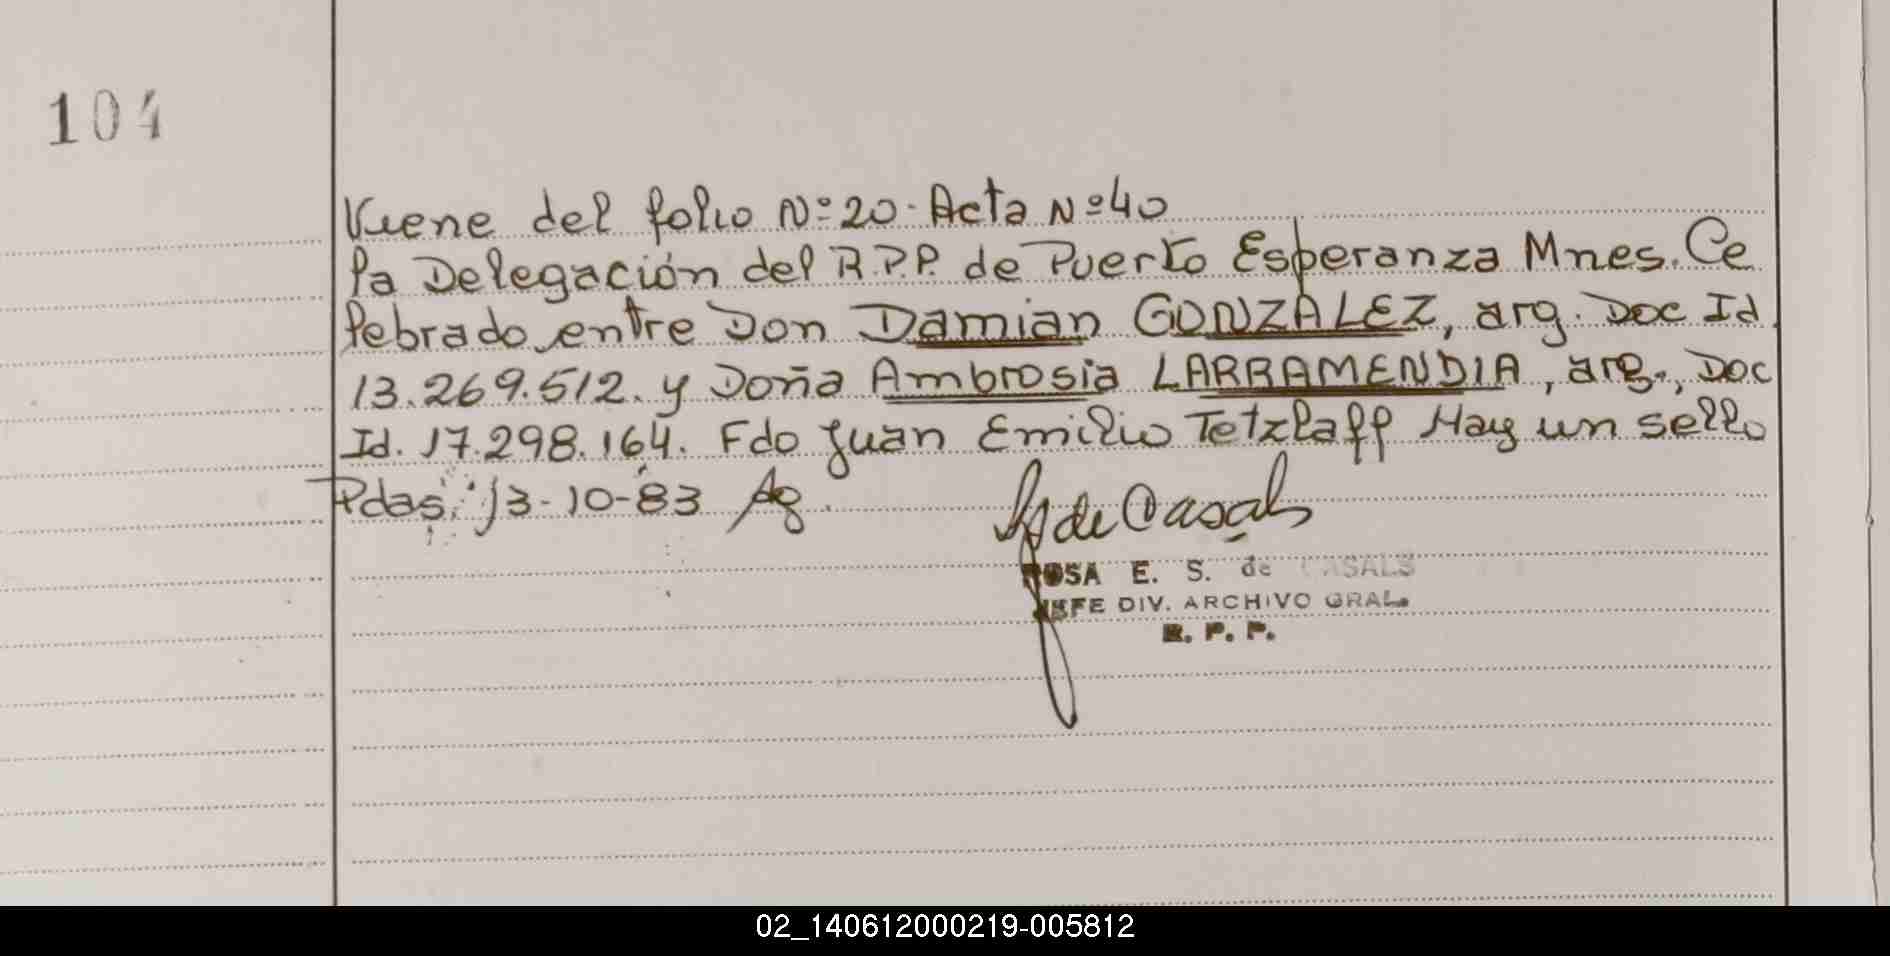 104
Viene del folio Nº 20. Acta Nº 40
la Delegación del R.P.P. de Puerto Esperanza Mnes. Ce
lebrado entre Don Damian GONZALEZ, arg. Doc Id.
13.269.512. y Doña Ambrosia LARRAMENDIA, arg., Doc
Id. 17.298.164. Fdo Juan Emilio Tetzlaff Hay un sello
Pdas. 13-10-83
de Casals
ROSA E. S. de CASALS
JEFE DIV. ARCHIVO GRAL.
R. P. P.
02_140612000219-005812